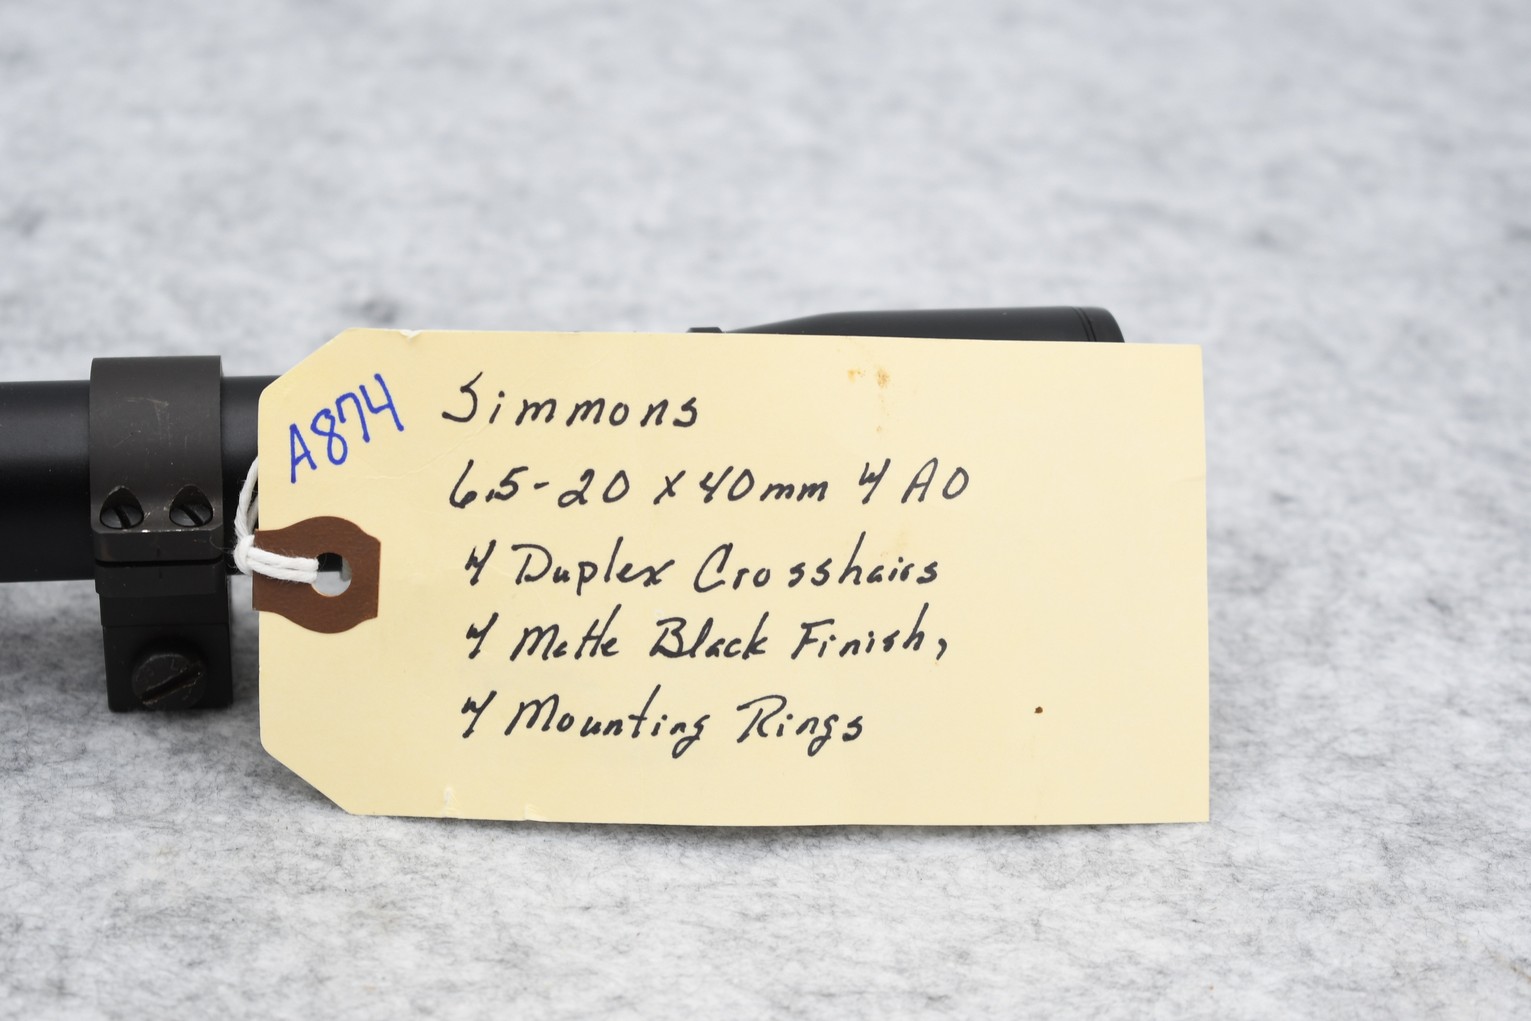 A874
Simmons
6.5-20 x 40mm w/ AO
w/ Duplex Crosshairs
w/ Matte Black Finish,
w/ Mounting Rings